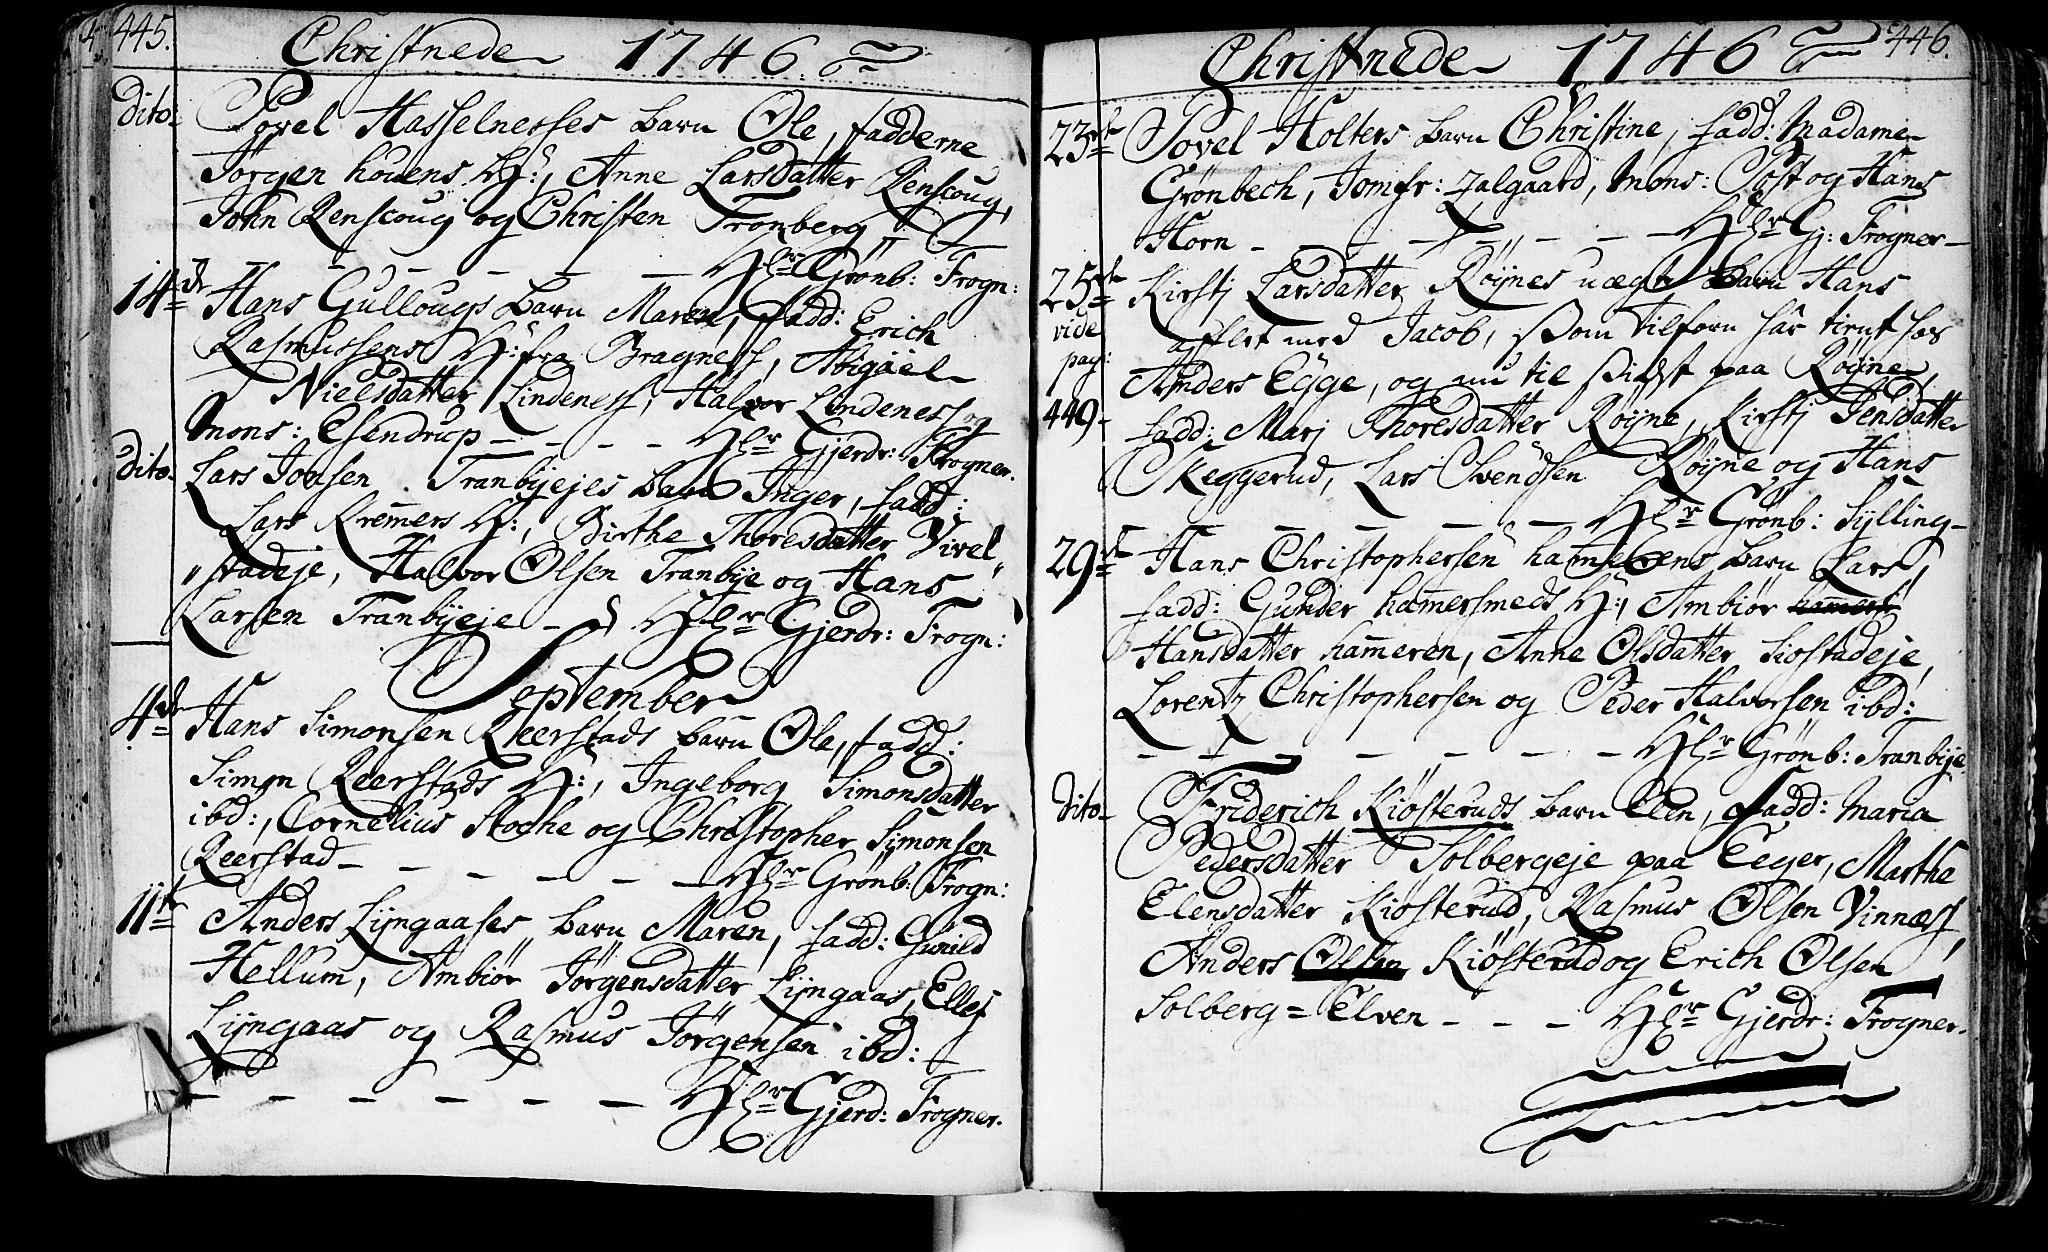 445.
Christnede 1746.
dito: Povel Hasselnesses barn Ole, fadderne
Jørgen houens H:, Anne Larsdatter Renscoug,
John Renscoug og Christen Tronberg
- - - - - - Hr Grønb: Frogn:
14de Hans Gullougs barn Maren, fadd: Erich
Rasmussens H: fra Bragness, Abigael
Nielsdatter Lindeness, Halvor Lindeness og
Mons: Esendrup - - - - Hr Gjerdr: Frogner.
dito- Lars Jonsen Tranbyejes barn Inger, fadd:
Lars Kremers H:, Birthe Thoresdatter Vivel„
„stadeje, Halvor Olsen Tranbye og Hans
Larsen Tranbyeje - Hr Gjerdr: Frogn:
September
4de Hans Simonsen Reerstads barn Ole, fadd:
Simon Reerstads H:, Ingeborg Simonsdatter
ibd:, Cornelius Stoche og Christopher Simonsen
Reerstad - - - - - - Hr Grönb: Frogn:
11te Anders Lyngaases barn Maren, fadd: Gunild
Hellum, Ambiör Jörgensdatter Lyngaas, Ellej
Lyngaas og Rasmus Jörgensen ibd:
- - - - - - Hr Gjerd: Frogner.
446.
Christnede 1746
23de Povel Holters barn Christine, fadd: Madame
Grönbech, Jomfr: Zalgaard, Mons: Post og Hans
Horn - - - - - - Hr Gj: Frogner-
25de Kirstj Larsdatter Röynes uægte barn Hans
vide afflet med Jacob, som tilforn har tient hos
pag: Anders Egge, og nu til sidst paa Röyne,
449- fadd: Marj Thoresdatter Röyne, Kirstj Jensdatter
Skeggerud, Lars Svendsen Röyne og Hans
- - - - - Hr Grönb: Sylling-
29de Hans Christophersen hammerens barn Lars,
fadd: Gunder hammersmeds H:, Ambiør hamers
Hansdatter hammeren, Anne Olsdatter Siostadeje,
Lorentz Christophersen og Peder Halvorsen ibd:
- - - - - - Hr Grönb: Tranbye.
dito- Friderich Kiösteruds barn Elen, fadd: Maria
Pedersdatter Solbergeje paa Eeger, Marthe
Elensdatter Kiösterud, Rasmus Olsen Vinness,
Anders Olsen Kiösterud og Erich Olsen
Solberg=Elven - - - Hr Gjerdr: Frogner.